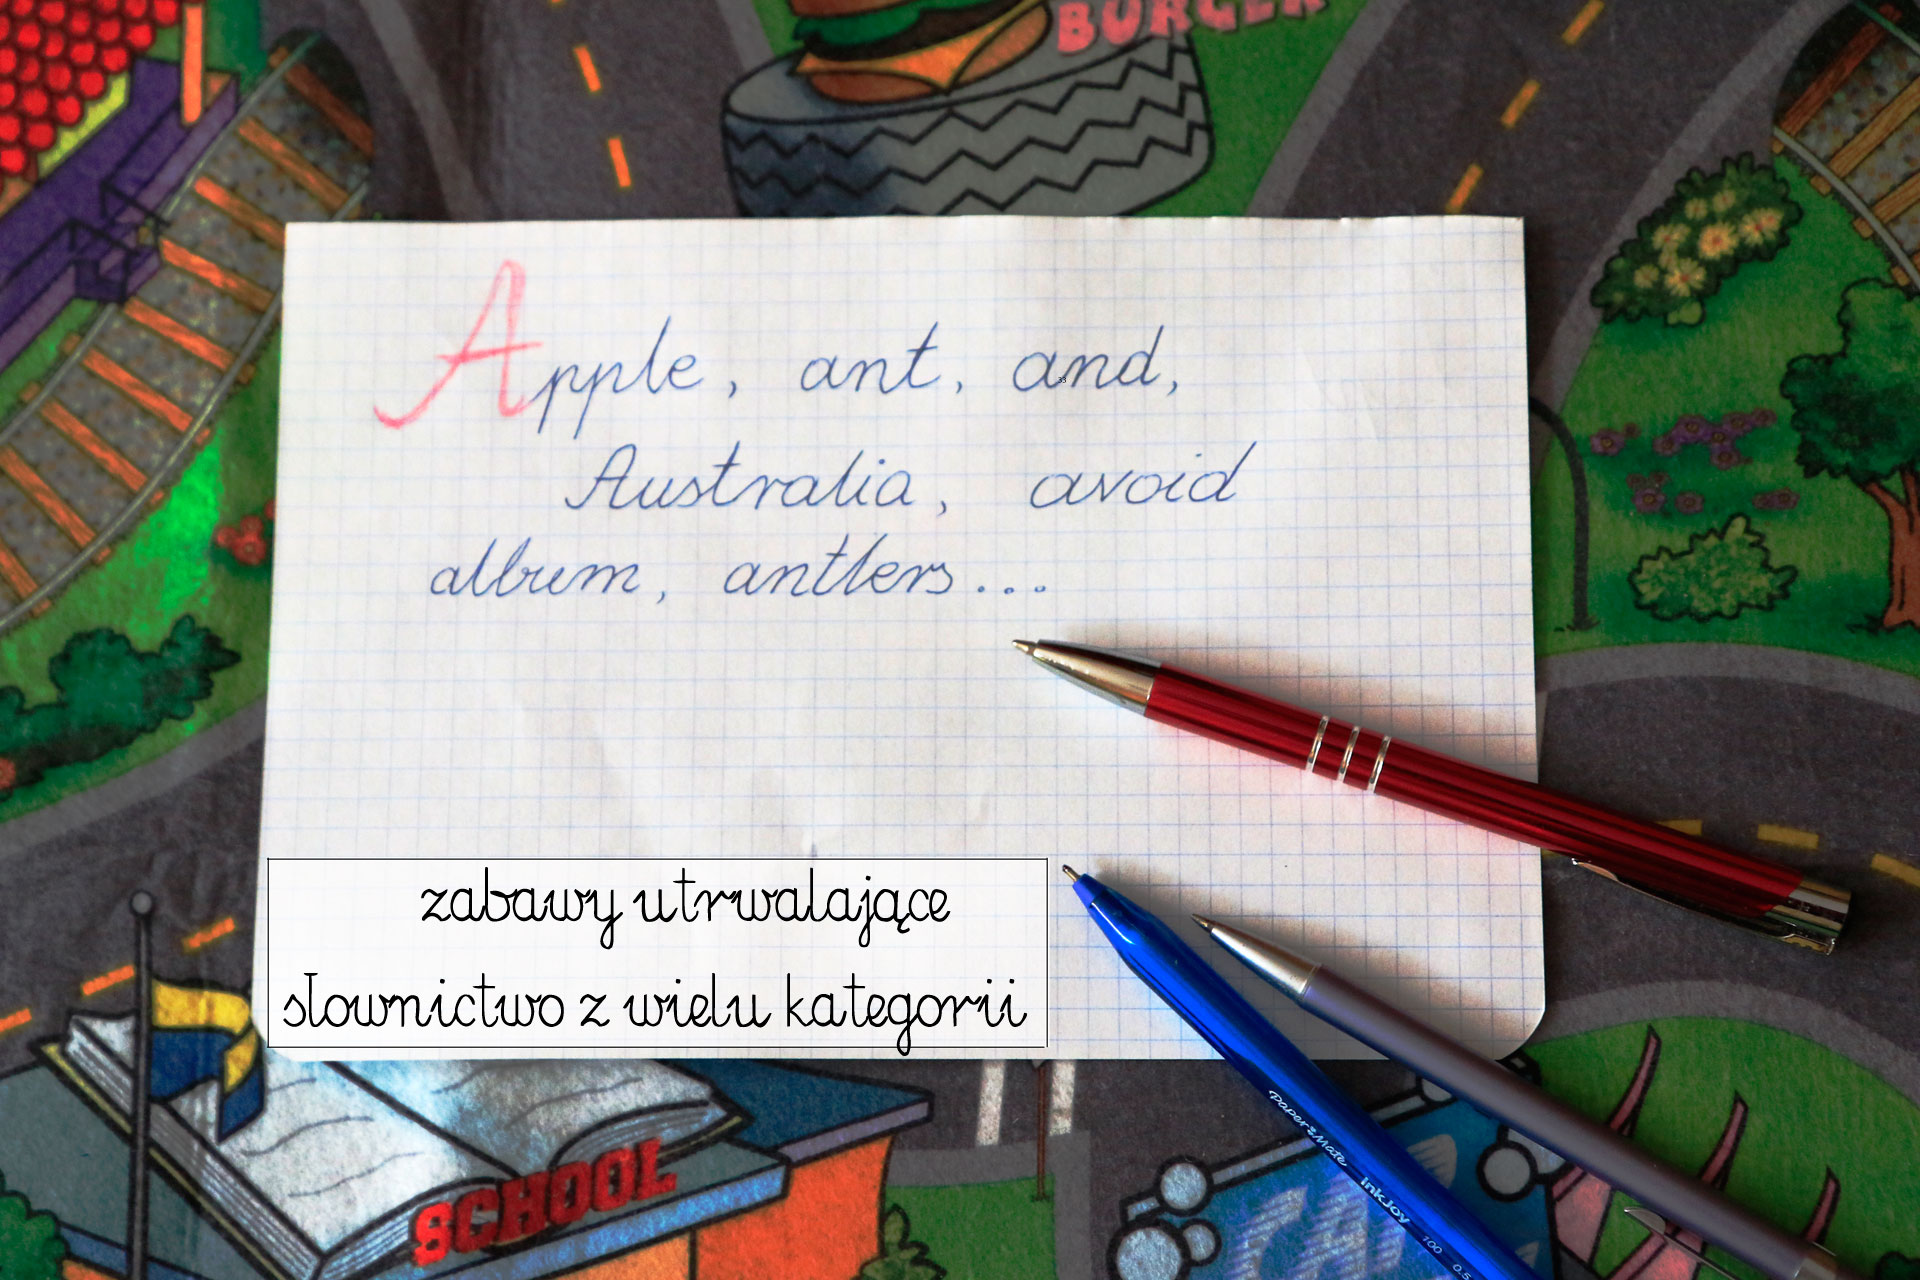 BURGER
Apple, ant, and,
33
Australia, avoid
album, antlers...
zabawy utrwalające
słownictwo z wielu kategorii
SCHOOL
Paper:Mate InkJoy 100 0.5